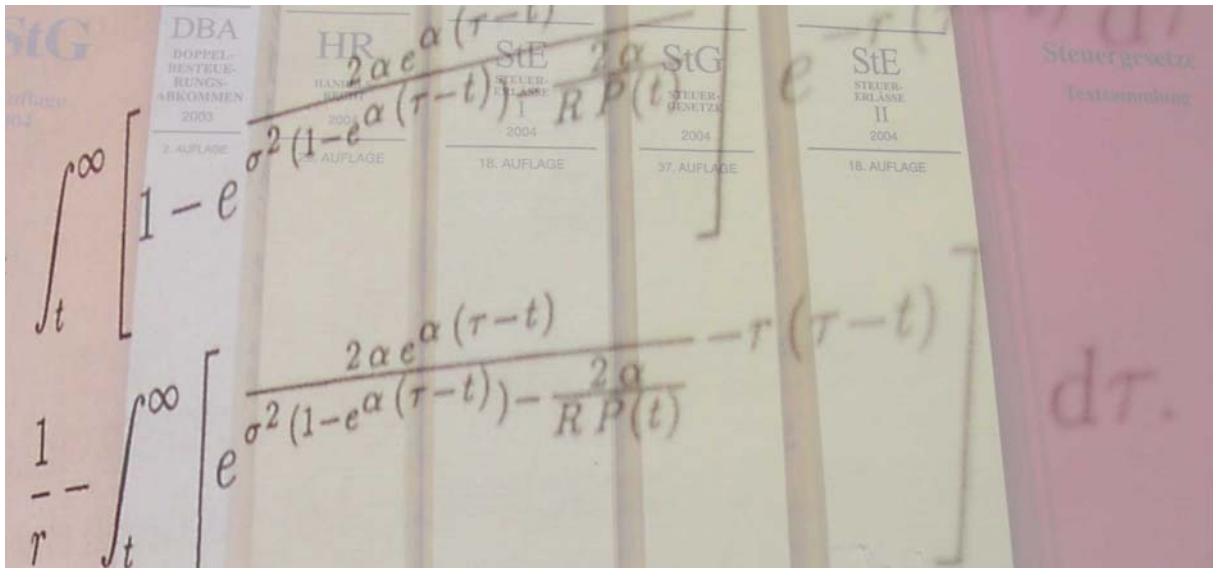 StG
2004
DBA
DOPPEL-
BESTEUE-
RUNGS-
ABKOMMEN
2003
2. AUFLAGE
HR
2004
AUFLAGE
StE
STEUER-
ERLÄSSE
I
2004
18. AUFLAGE
StG
STEUER-
GESETZE
2004
37. AUFLAGE
StE
STEUER-
ERLÄSSE
II
2004
18. AUFLAGE
Steuergesetze
Textsammlung
∫_t^∞ [1 − e^{\frac{2αe^{α(τ−t)}}{σ^2(1−e^{α(τ−t)})−\frac{2α}{RP(t)}}}] e^{−r(τ−t)} dτ
\frac{1}{r} − ∫_t^∞ [e^{\frac{2αe^{α(τ−t)}}{σ^2(1−e^{α(τ−t)})−\frac{2α}{RP(t)}}−r(τ−t)}] dτ.